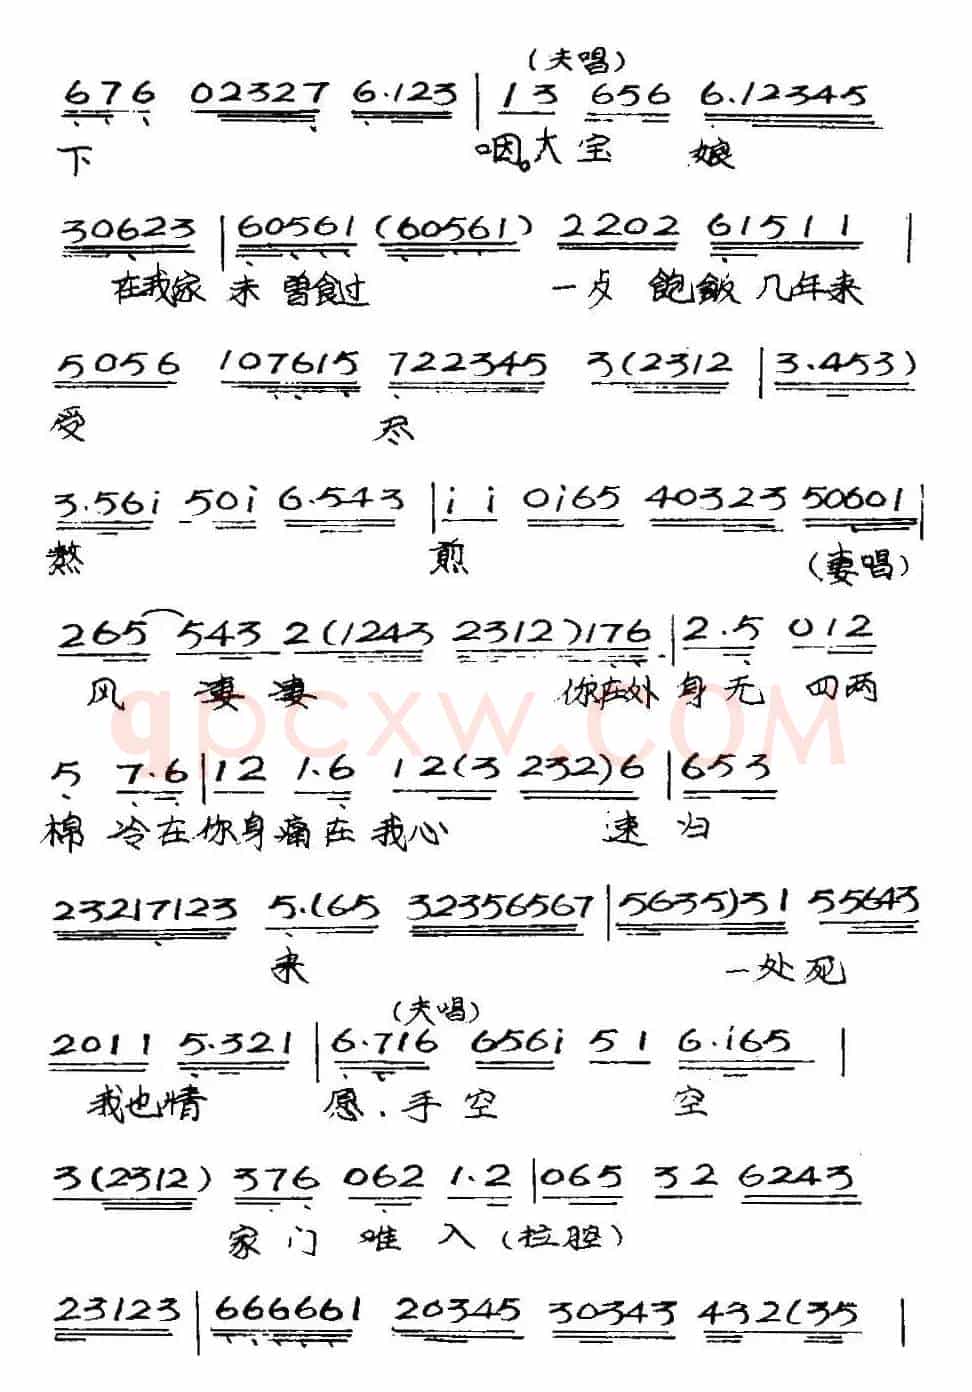 (夫唱)
676 02327 6.123 | 13 656 6.12345
下 咽。大宝 娘
30623 | 60561 (60561) 2202 61511 |
在我家 未曾食过 一点 飽飯 几年来
5056 107615 722345 3(2312 | 3.453)
受 尽
3.56i 50i 6.543 | i i 0i65 40323 50601 |
熬 煎 (妻唱)
265 543 2(1243 2312)176 | 2.5 012
风 凄凄 你在外 身无 四两
qpcxw.COM
5 7.6 | 12 1.6 12(3 232)6 | 653
棉 冷在你身痛在我心 速归
23217123 5.(65 32356567 | 5635)31 55643
来 一处死
(夫唱)
2011 5.321 | 6.716 656i 51 6.i65 |
我也情 愿.手空 空
3(2312) 376 062 1.2 | 065 32 6243
家门难入(拉腔)
23123 | 666661 20345 30343 432(35 |